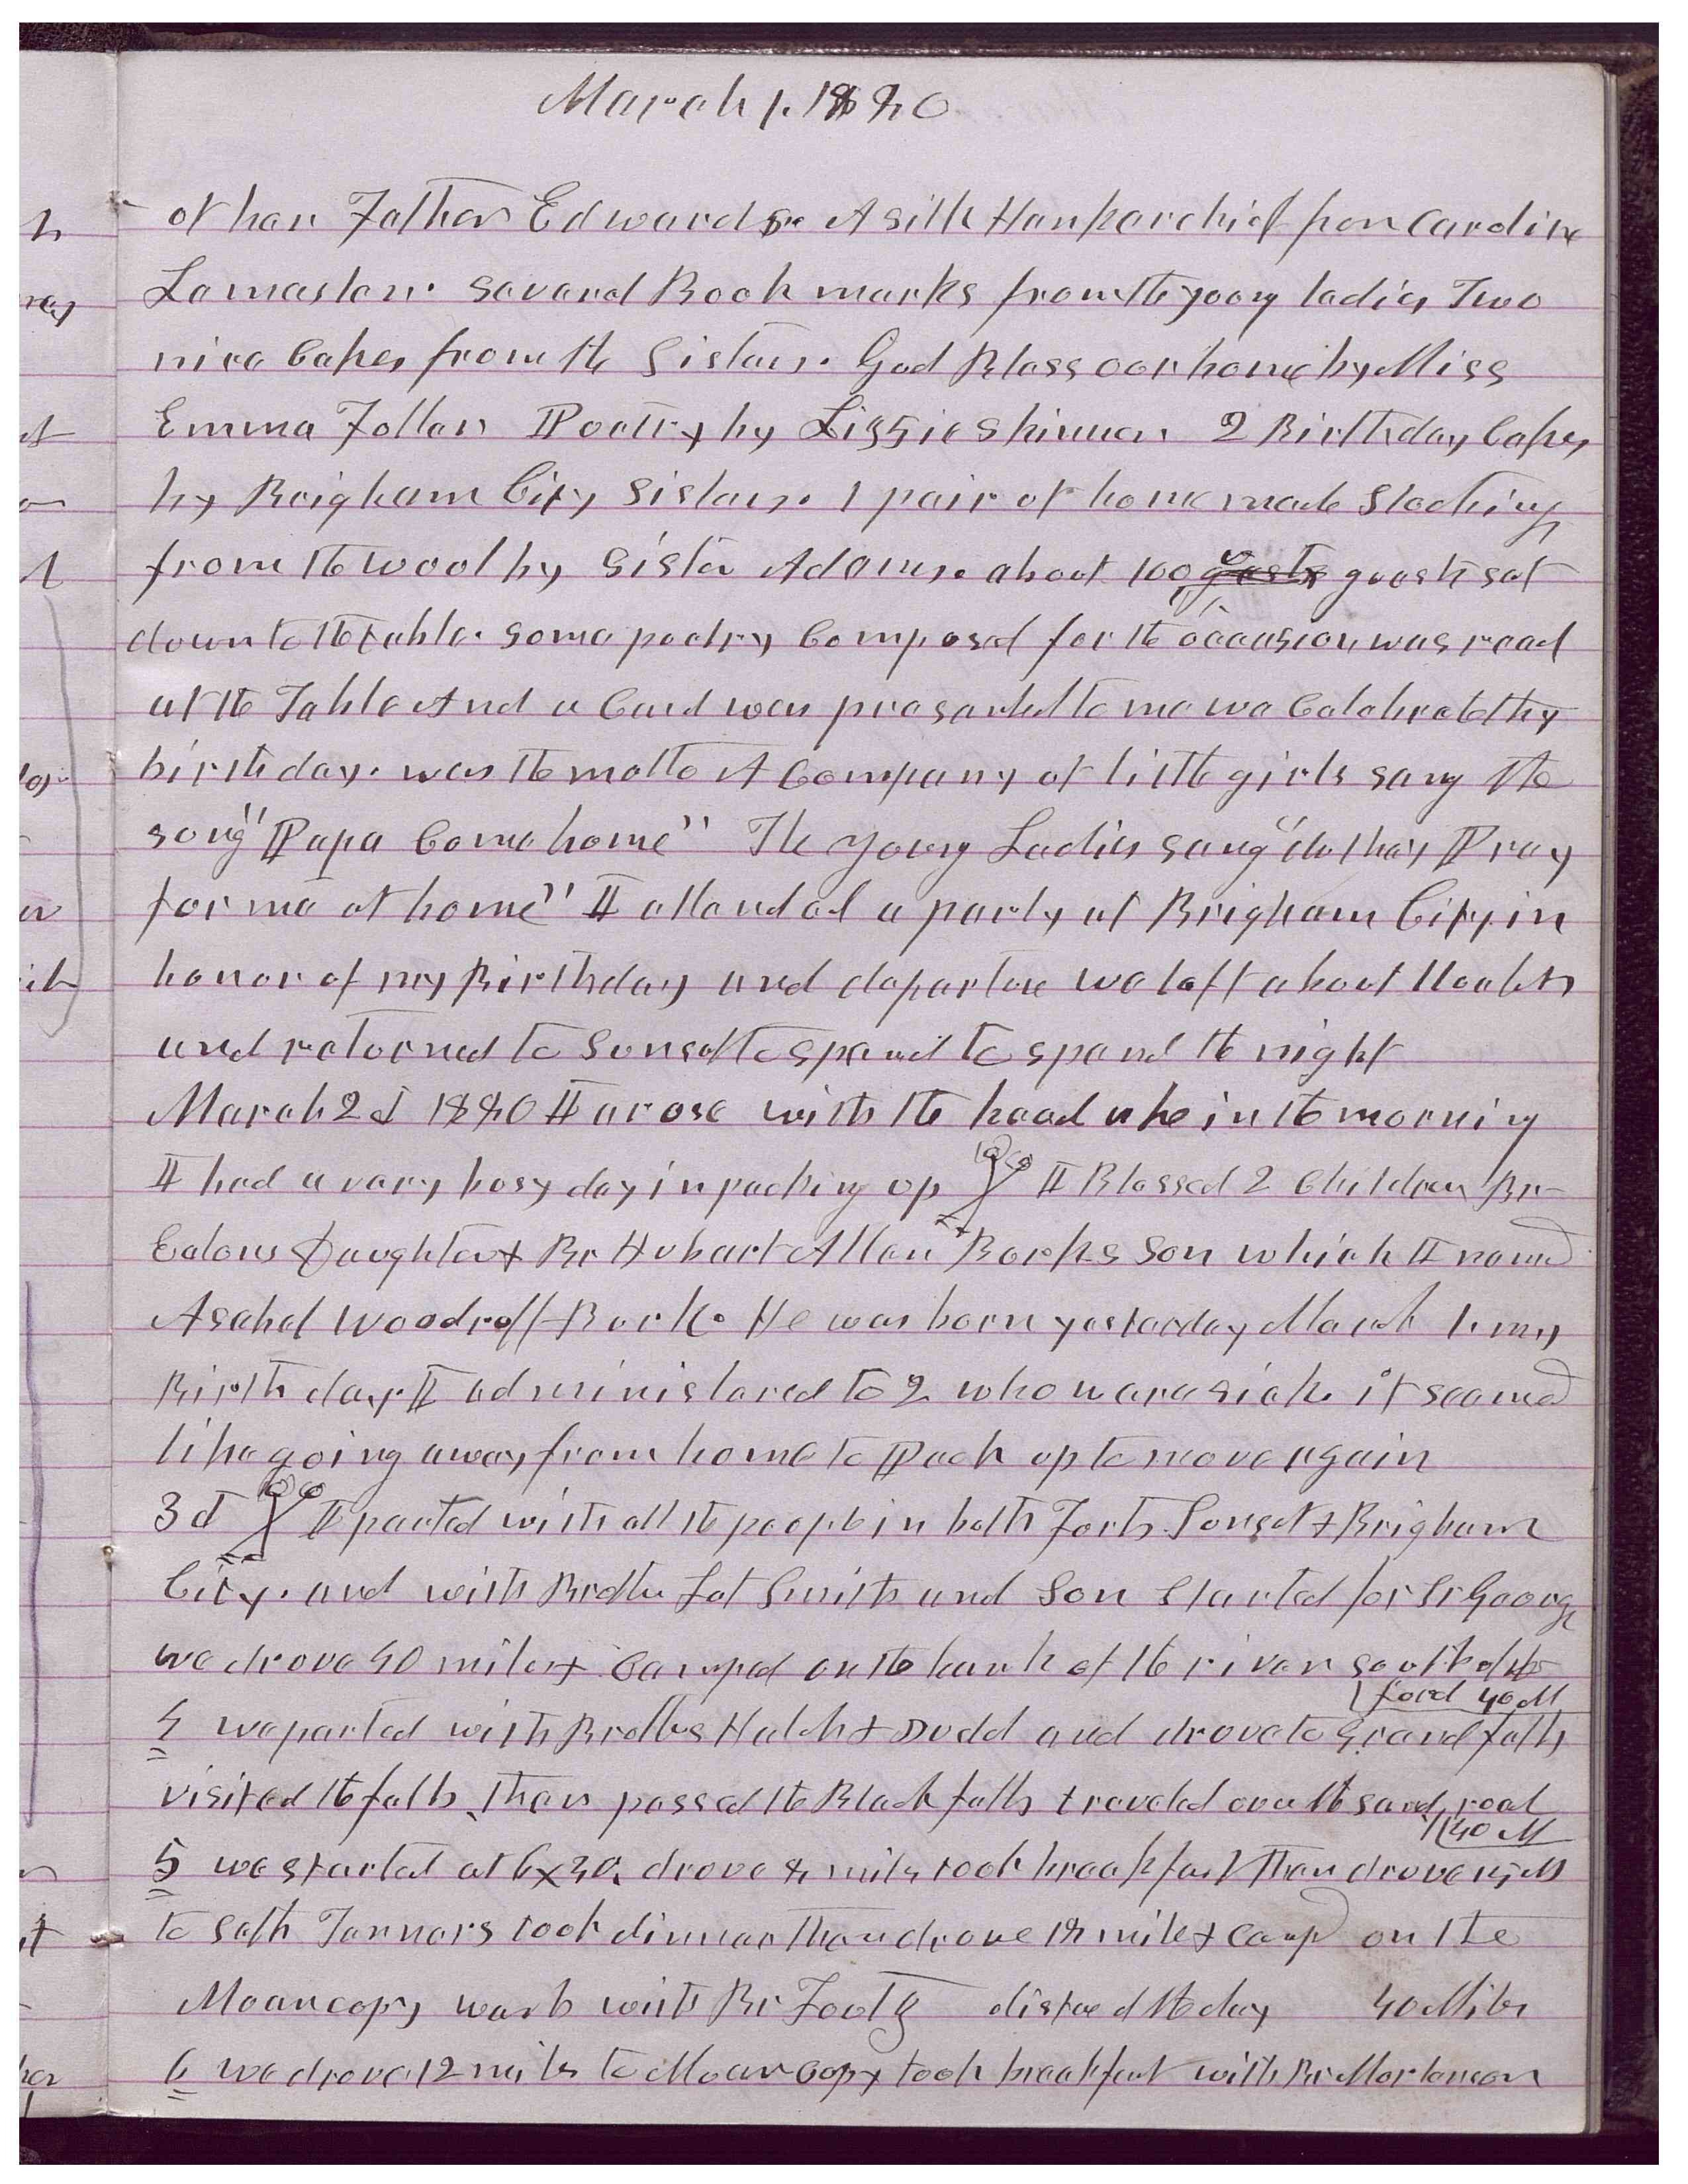 March 1. 1880
of her Father Edwards. A silk Hankerchief from Caroline
Lamaster. Several Book marks from the young ladies Two
nice Cakes from the Sisters. God Bless our home by Miss
Emma Fuller Poetry by Lizzie Skinner 2 Birthday Cakes
by Brigham City Sisters. 1 pair of home made Stockings
from the wool by Sister Adams. about 100 guests guests sat
down to the table. some poetry Composed for the occasion was read
at the Table And a Card was presented to me we Celebrate thy
birthday. was the motto A Company of little girls sang the
song "Papa Come home" The young Ladies sang "do they Pray
for me at home" I attended a party at Brigham City in
honor of my Birthday and departure we left about 11 oclok
and returned to Sunset to spend to spend the night
March 2d 1880 I arose with the head ake in the morning
I had a very busy day in packing up I Blessed 2 Children Br
Daughter & Br Hubart Allen Burks Son which I named
Asahel Woodruff Burk. He was born yesterday March 1. my
Birthday. I administered to 2 who were sick. it seemed
like going away from home to Pack up to move again
3d I parted with all the people in both Forts Sunset & Brigham
City. and with Brother Lot Smith and Son Started for St George
we drove 40 miles & Camped on the bank of the river south of the
ford 40 M
4 we parted with Brothers Hatch & Dudd and drove to Grand falls
visited the falls then passed the Black falls traveled over the sand road
40 M
5 we started at 6x30. drove 8 miles took breakfast then drove 14 M
to Seth Tanners took dinner then drove 18 miles & camp on the
Moancopy wash with Br Foote distance of the day 40 Miles
6 we drove 12 miles to Moancopy took breakfast with Br Mortensen